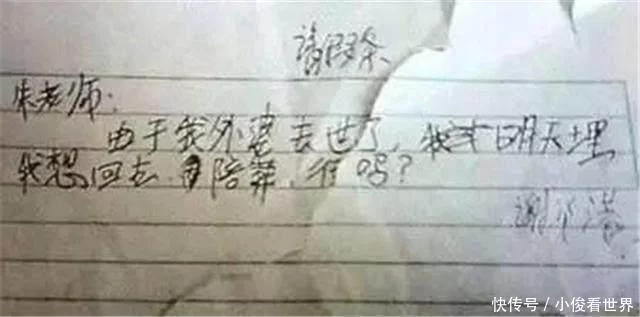 请假条
朱老师：
由于我外婆去世了，我求明天埋
我想回去陪葬，行吗？
快传号/小俊看世界